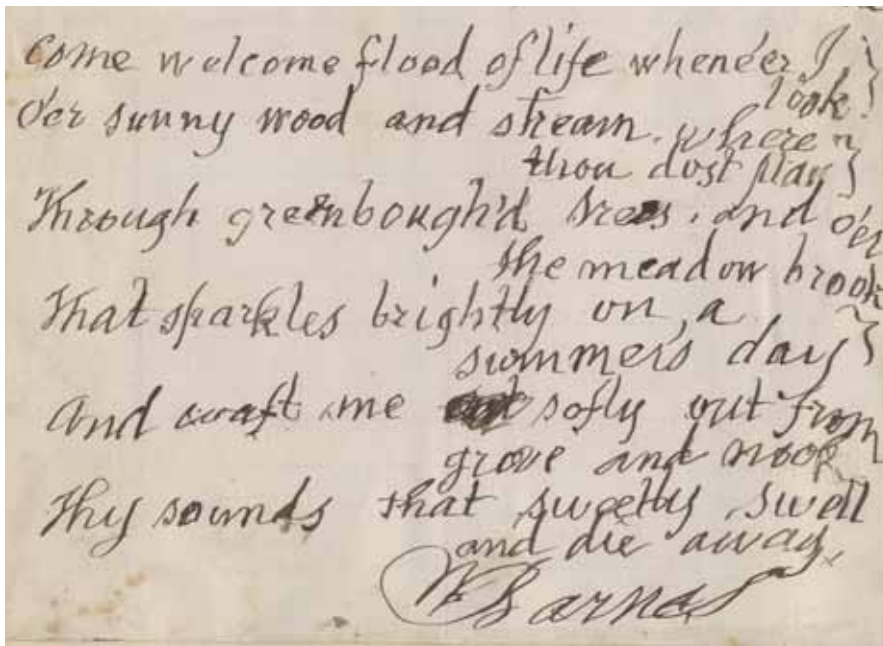 Come welcome flood of life whene'er I
look
O'er sunny wood and stream. where
thou dost play
Through greenbough'd trees. and o'er
the meadow brook
That sparkles brightly on a
summers day
And waft me softly out from
grove and nook
Thy sounds that sweetly swell
and die away.
W Barnes